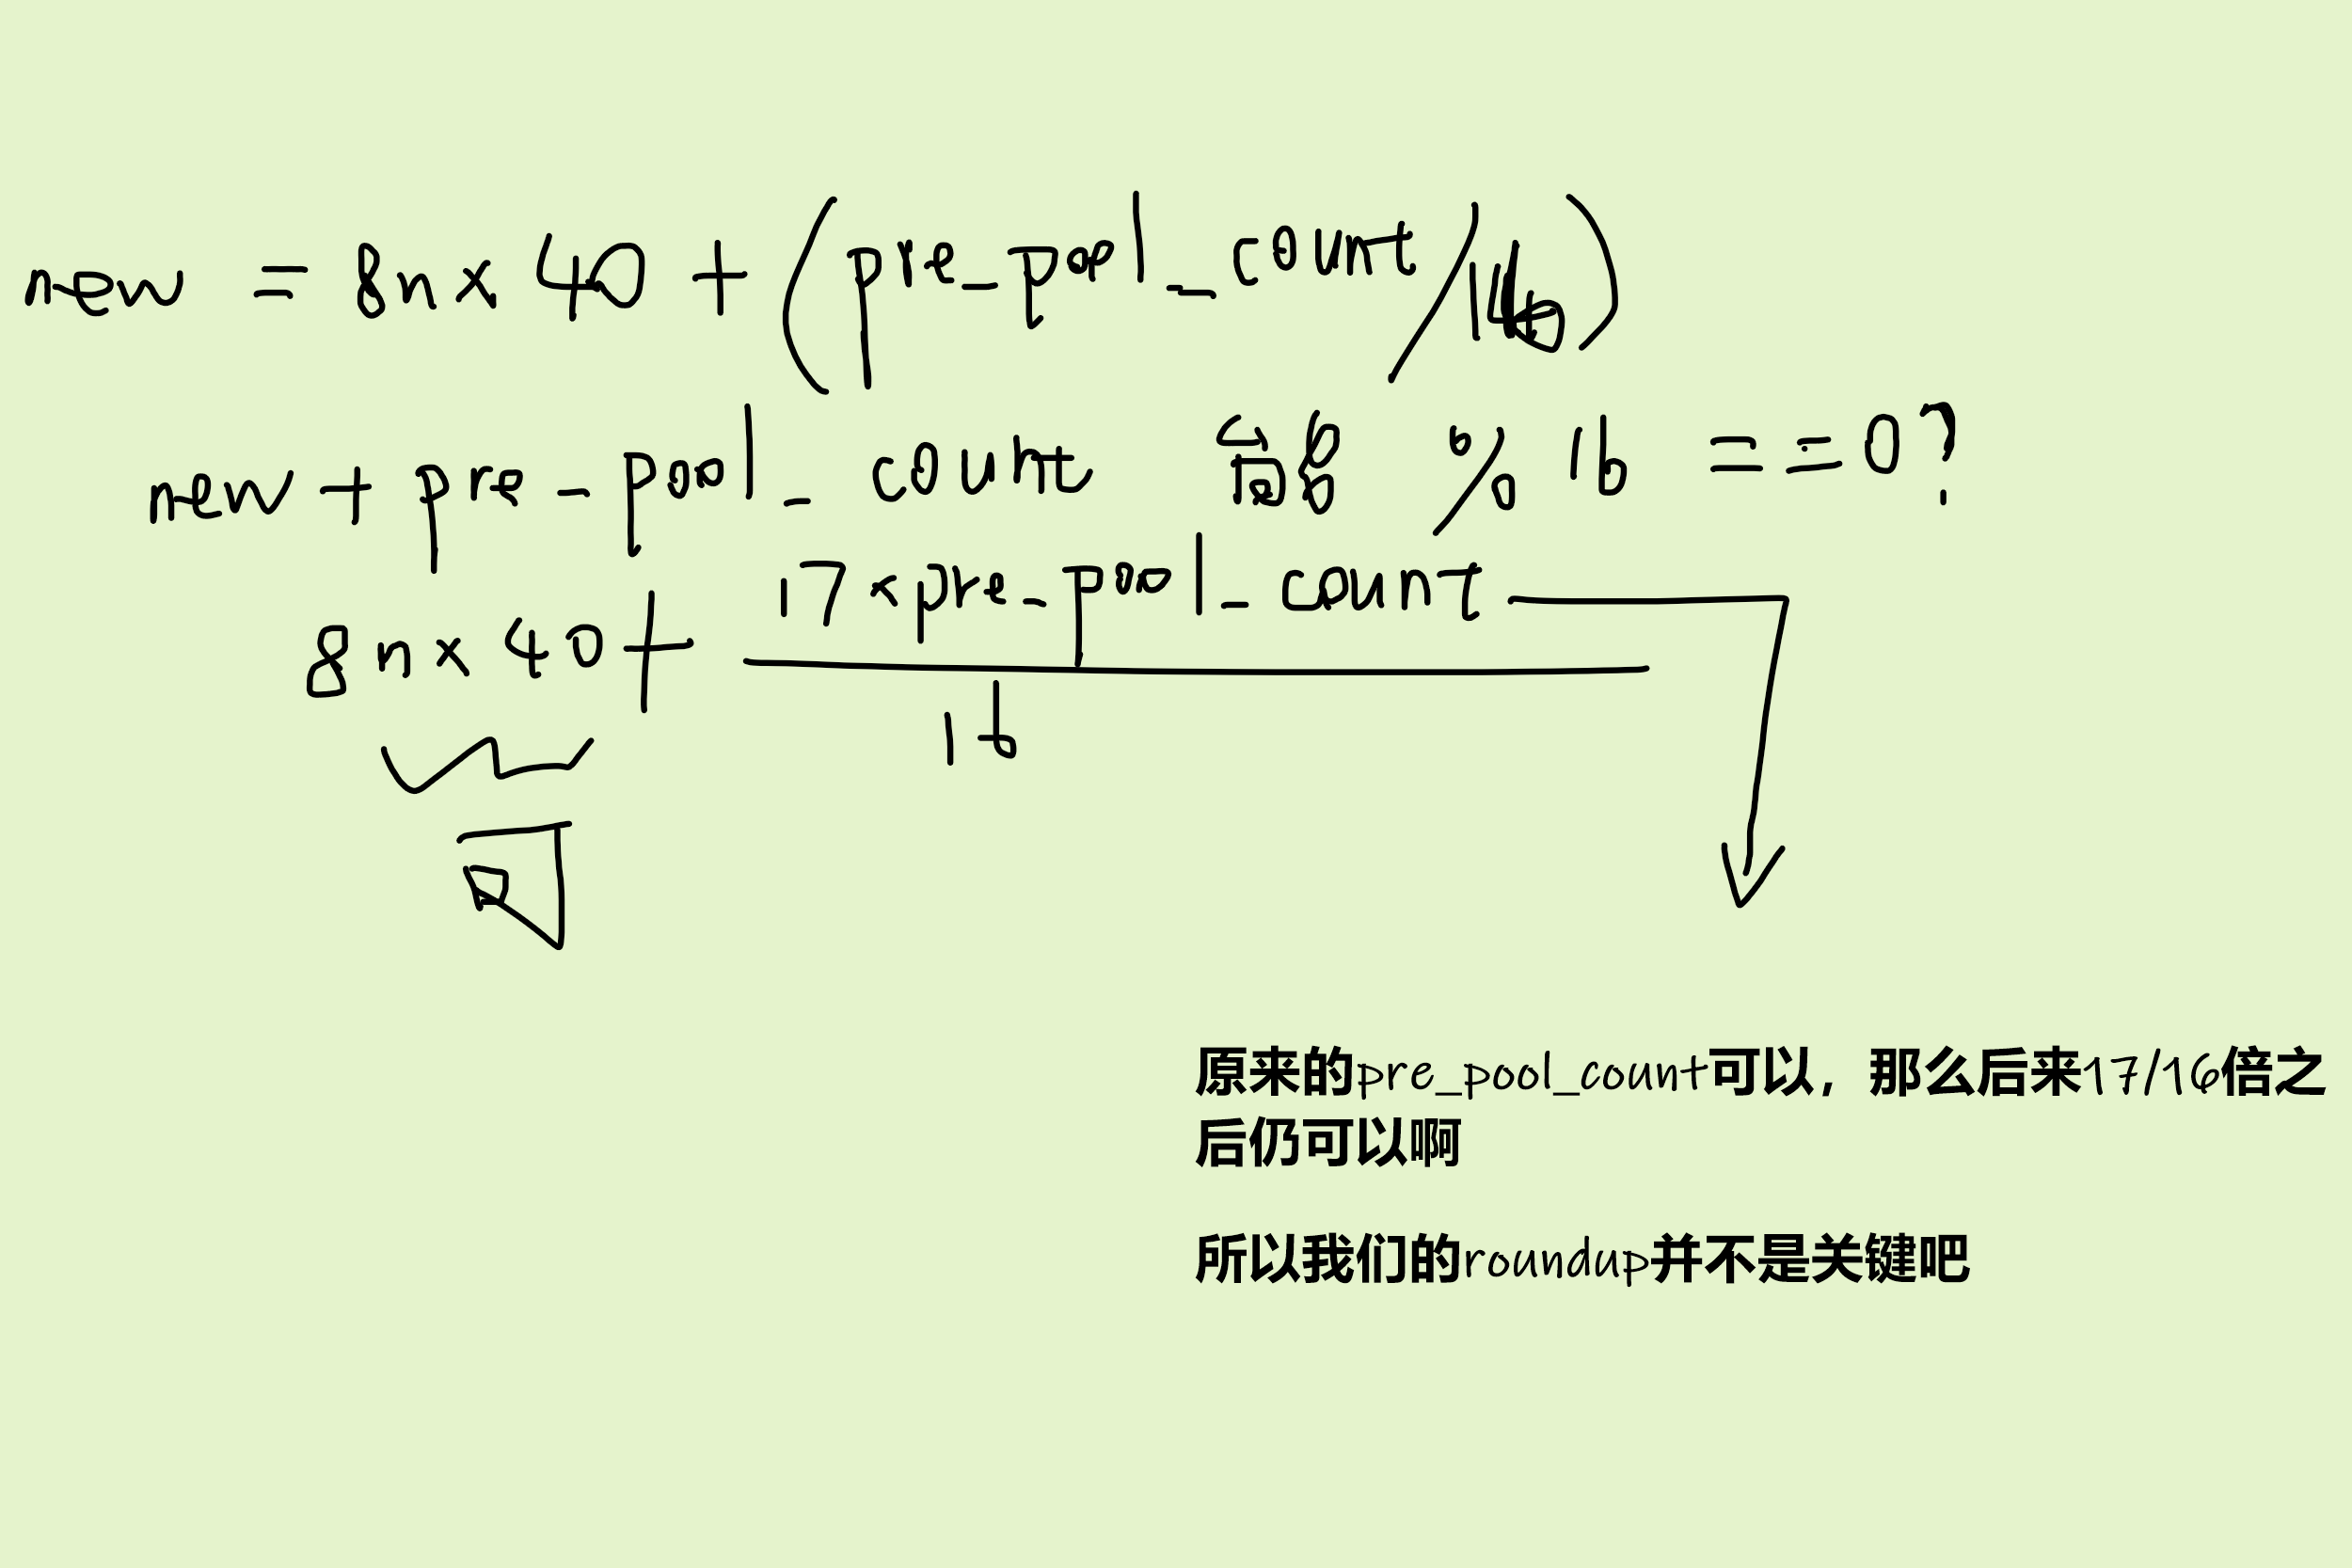 new = 8n × 40 + (pre_pool_count/16)
new + pre_pool_count 会 % 16 == 0?
8n × 40 + 17 × pre_pool_count
16
可
原来的pre_pool_count可以，那么后来17/16倍之
后仍可以啊
所以我们的roundup并不是关键吧